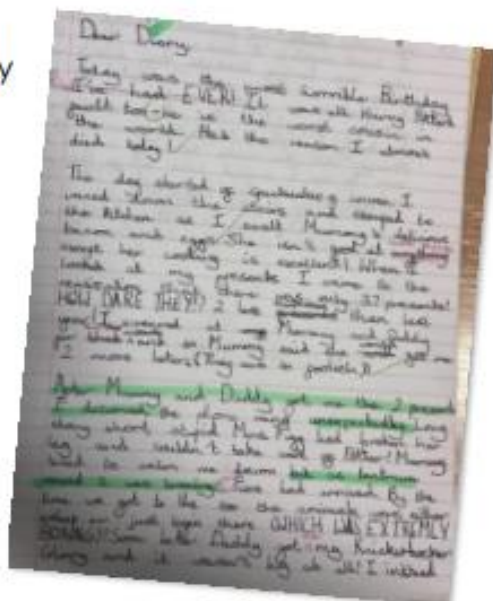 y
Dear Diary,
Today was the most horrible Birthday
I've had EVER! It was all Harry Potter
fault too - he is the worst cousin in
the world. He's the reason I almost
died today!
The day started of spectacular when I
raced down the stairs and to
the kitchen as I smelt Mummy's delicious
bacon and eggs. She isn't good at anything
except her cooking is excellent! When I
looked at my presents I came to the
there only 37 presents!
HOW DARE THEY! 2 less than last
year! I screamed at Mummy and Daddy
and Mummy said she get me
2 more later. (They are so pathetic)
After Mummy and Daddy get me the 2 presents
I the day went unexpectedly long
story short, stupid Mrs Figg had broken her
leg and couldn't take care of Potter! Mummy
tried to calm me down but no tantrum
Piers had arrived. By the
time we got to the zoo the animals were either
asleep or just lying there (WHICH WAS EXTREMELY
BORING)! Soon after Daddy got my Knickerbocker
Glory and it wasn't big at all! I instead